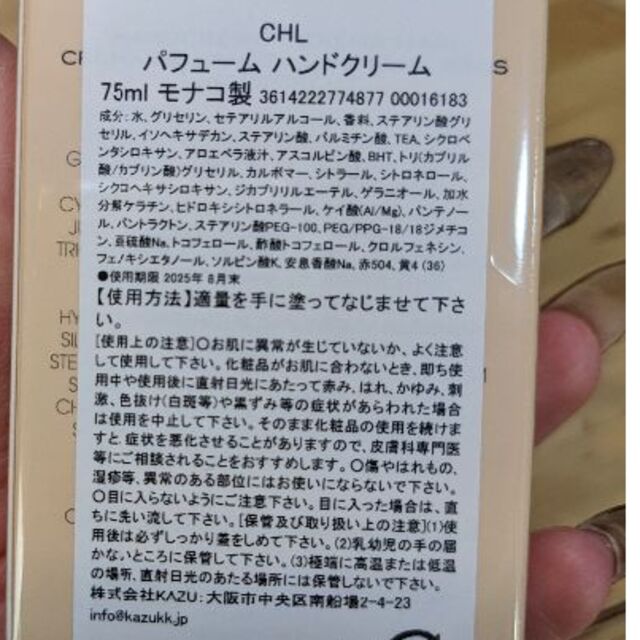 CHL
パフューム ハンドクリーム
75ml モナコ製 3614222774877 00016183
成分:水、グリセリン、セテアリルアルコール、香料、ステアリン酸グリ
セリル、イソヘキサデカン、ステアリン酸、パルミチン酸、TEA、シクロペ
ンタシロキサン、アロエベラ液汁、アスコルビン酸、BHT、トリ(カプリル
酸/カプリン酸)グリセリル、カルボマー、シトラール、シトロネロール、
シクロヘキサシロキサン、ジカプリルエーテル、ゲラニオール、加水
分解ケラチン、ヒドロキシシトロネラール、ケイ酸(Al/Mg)、パンテノー
ル、パントラクトン、ステアリン酸PEG-100、PEG/PPG-18/18ジメチコ
ン、亜硫酸Na、トコフェロール、酢酸トコフェロール、クロルフェネシン、
フェノキシエタノール、ソルビン酸K、安息香酸Na、赤504、黄4 (36)
●使用期限 2025年 8月末
【使用方法】適量を手に塗ってなじませて下さ
い。
[使用上の注意]〇お肌に異常が生じていないか、よく注意
して使用して下さい。化粧品がお肌に合わないとき、即ち使
用中や使用後に直射日光にあたって赤み、はれ、かゆみ、刺
激、色抜け(白斑等)や黒ずみ等の症状があらわれた場合
は使用を中止して下さい。そのまま化粧品の使用を続けま
すと、症状を悪化させることがありますので、皮膚科専門医
等にご相談されることをおすすめします。〇傷やはれもの、
湿疹等、異常のある部位にはお使いにならないで下さい。
〇目に入らないようにご注意下さい。目に入った場合は、直
ちに洗い流して下さい。[保管及び取り扱い上の注意](1)使
用後は必ずしっかり蓋をしめて下さい。(2)乳幼児の手の届
かないところに保管して下さい。(3)極端に高温または低温
の場所、直射日光のあたる場所には保管しないで下さい。
株式会社KAZU:大阪市中央区南船場2-4-23
info@kazukk.jp